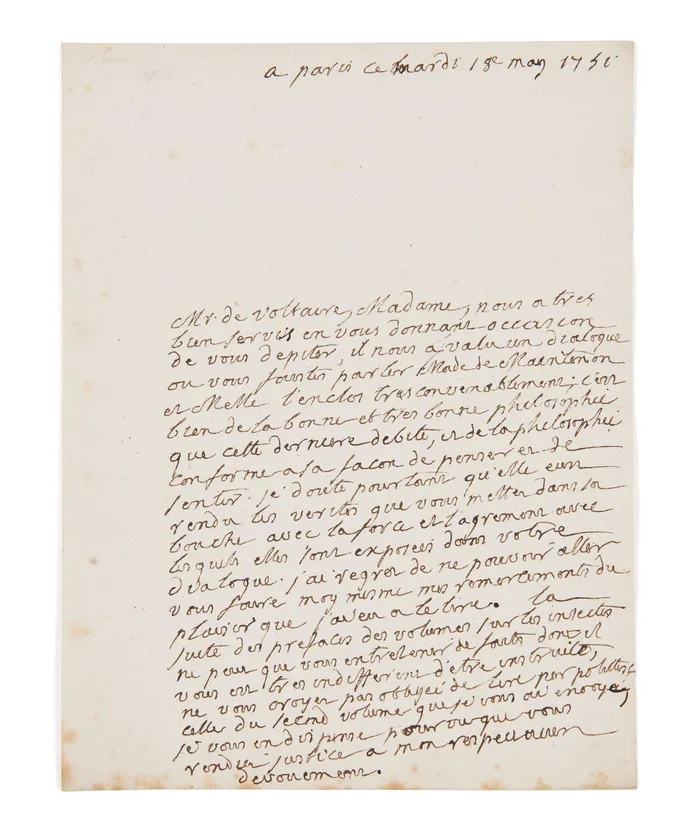 a paris ce mardi 18e may 1751
Mr. de Voltaire, Madame, nous a tres
bien servis en vous donnant occasion
de vous depiter, il nous a valu un dialogue
ou vous faites parler Made de Maintenon
et Melle l'enclos tres convenablement; c'est
bien de la bonne et tres bonne philosophie
que cette derniere debite, et de la philosophie
conforme a sa facon de penser et de
sentir. je doute pourtant qu'elle eut
rendu les verites que vous mettes dans sa
bouche avec la force et l'agrement avec
lesquels elles sont exposees dans votre
dialogue. j'ai regret de ne pouvoir aller
vous faire moy mesme mes remerciments du
plaisir que j'ai eu a le lire. la
suite des prefaces des volumes sur les insectes
ne peut que vous entretenir de faits dont il
vous est tres indifferent d'etre instruite,
ne vous croyez pas obligée de lire par politesse
celle du second volume que je vous ai envoyé,
je vous en dispense pourvu que vous
rendiez justice a mon respectueux
devouement.